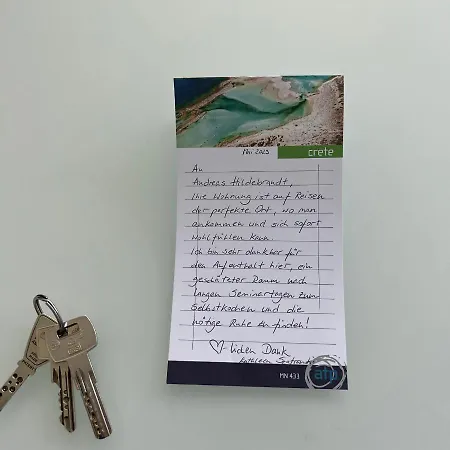 Mai 2025
crete
An
Andreas Hildebrandt,
Ihre Wohnung ist auf Reisen
der perfekte Ort, wo man
ankommen und sich sofort
Wohlfühlen kann.
Ich bin sehr dankbar für
den Aufenthalt hier, ein
geschützter Raum nach
langen Seminartagen zum
Selbstkochen und die
nötige Ruhe zu finden!
♡-lichen Dank
Kathleen
MN 433
afu